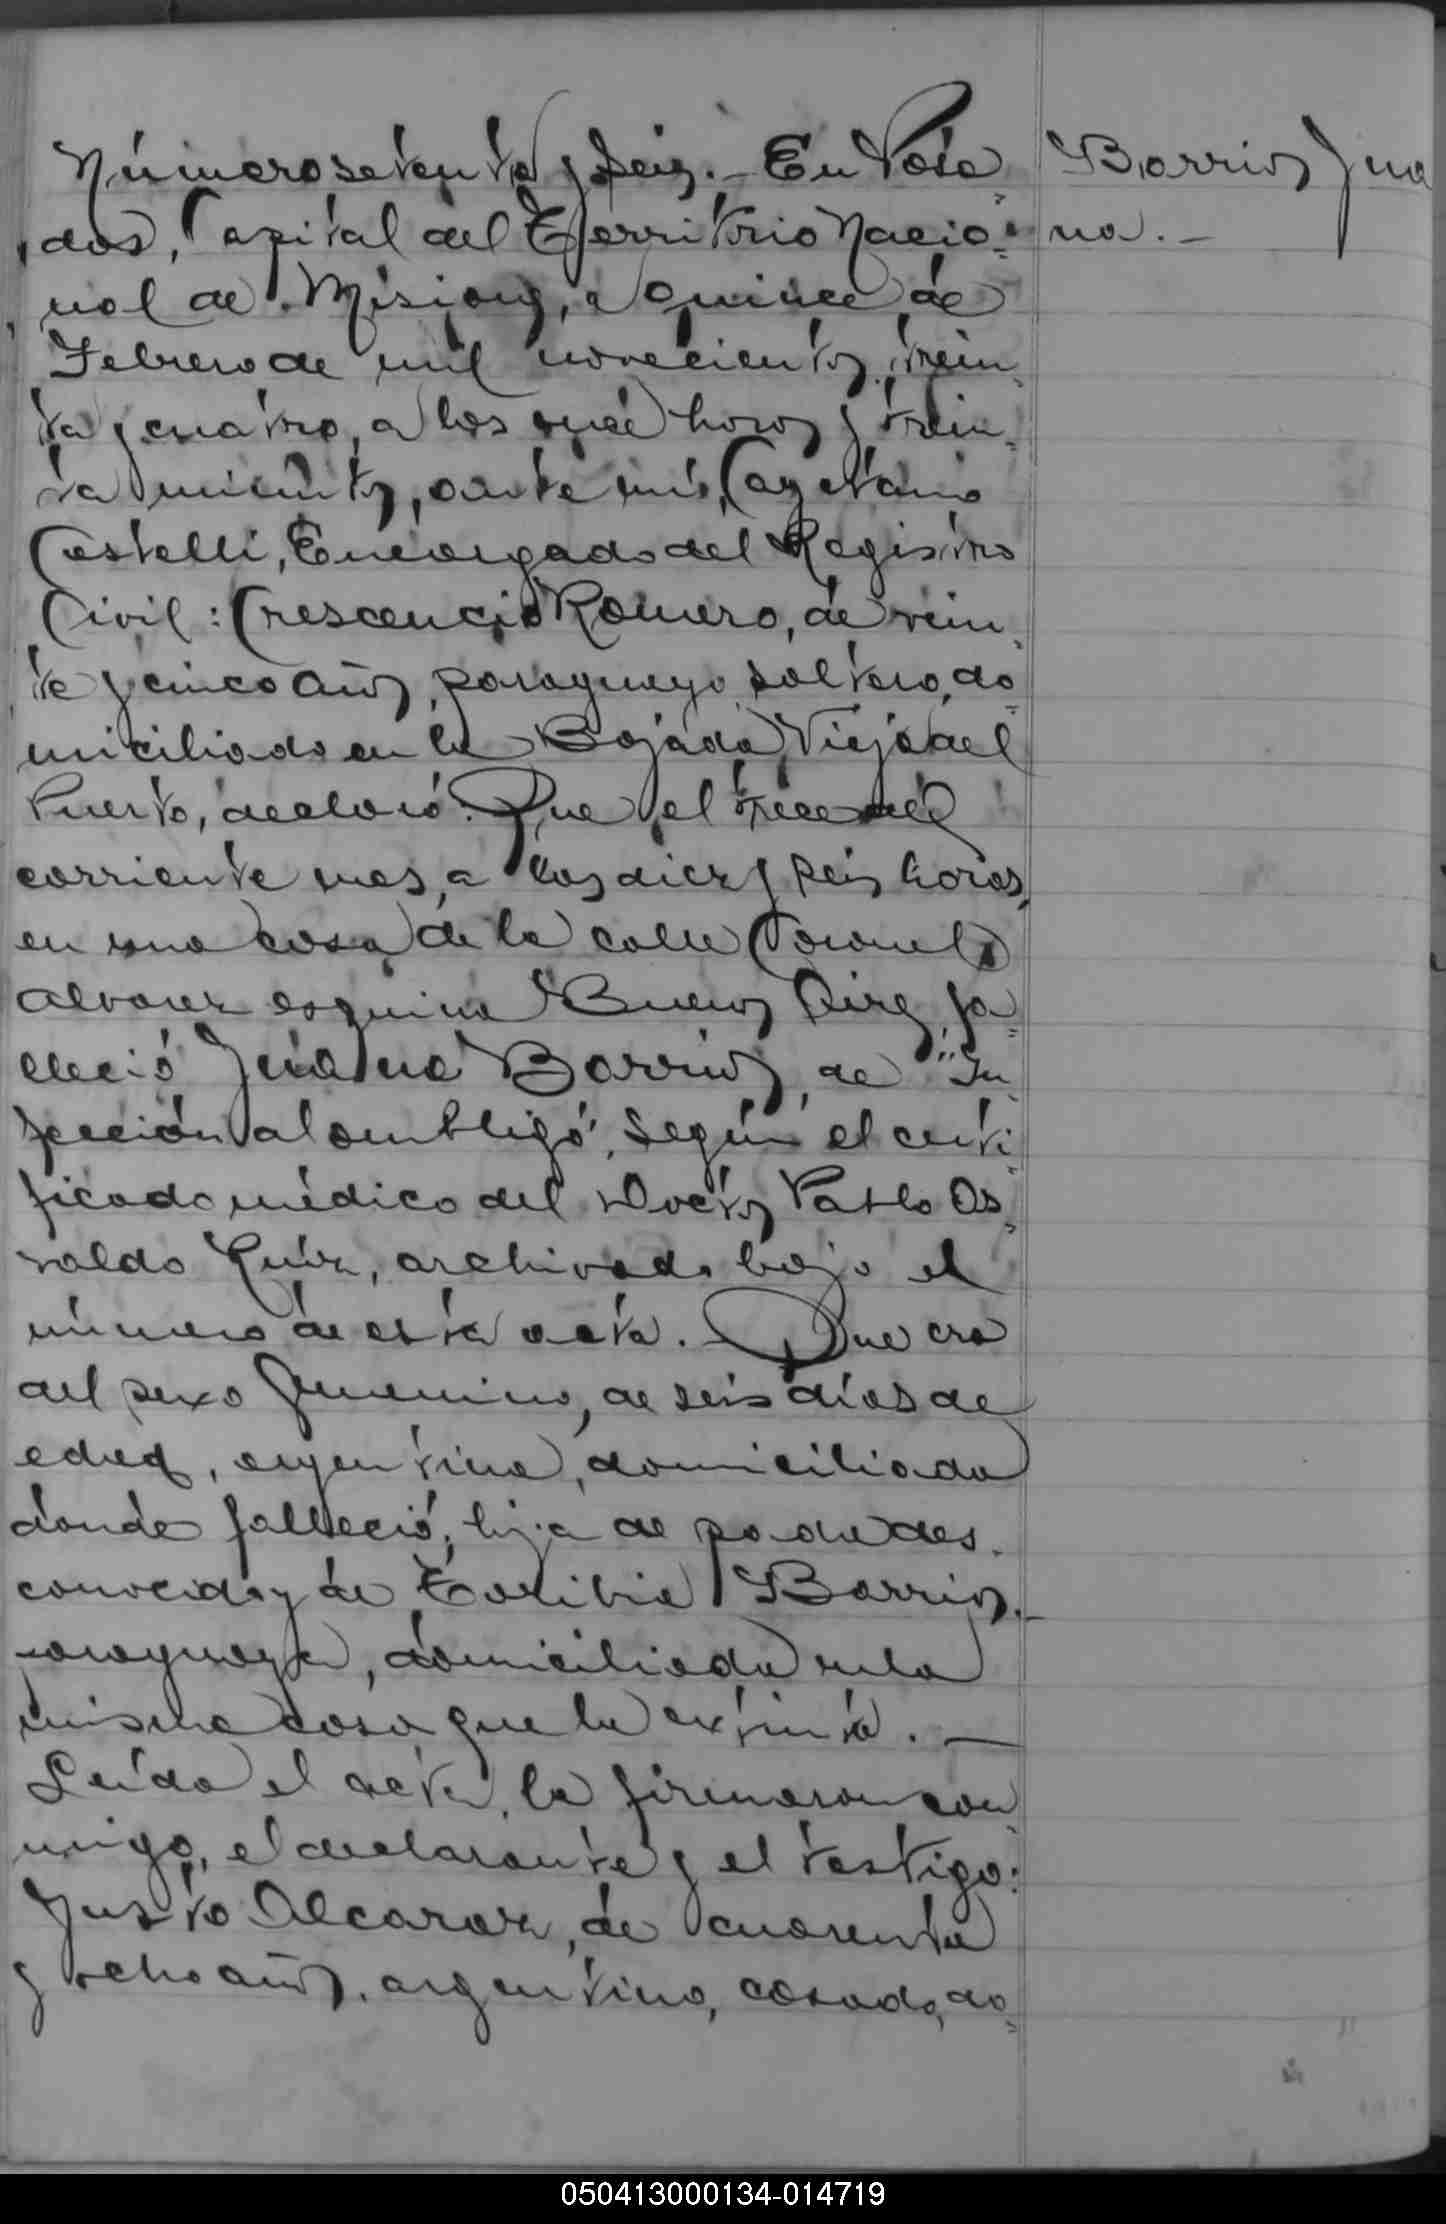 Número setenta y seis.- En Posa-
das, Capital del Territorio Nacio-
nal de Misiones, a quince de
Febrero de mil novecientos trein-
ta y cuatro, a las once horas y trein-
ta minutos, ante mí, Cayetano
Castelli, Encargado del Registro
Civil: Crescencio Romero, de vein-
te y cinco años, paraguayo, soltero, do-
miciliado en la Bajada Vieja del
Puerto, declaró: Que el trece del
corriente mes, a las diez y seis horas,
en una casa de la calle Coronel
Alvarez esquina Buenos Aires, fa-
lleció Juana Barrios, de "In-
fección al ombligo", según el certi-
ficado médico del Doctor Pablo Os-
valdo Ruiz, archivado bajo el
número de esta acta. Que era
del sexo femenino, de seis días de
edad, argentina, domiciliada
donde falleció, hija de padre des-
conocido y de Toribia Barrios.-
paraguaya, domiciliada en la
misma casa que la extinta. —
Leída el acta, la firmaron con-
migo, el declarante y el testigo:
Justo Alcaraz, de cuarenta
y ocho años, argentino, casado, do-
Barrios Jua
na.-
050413000134-014719